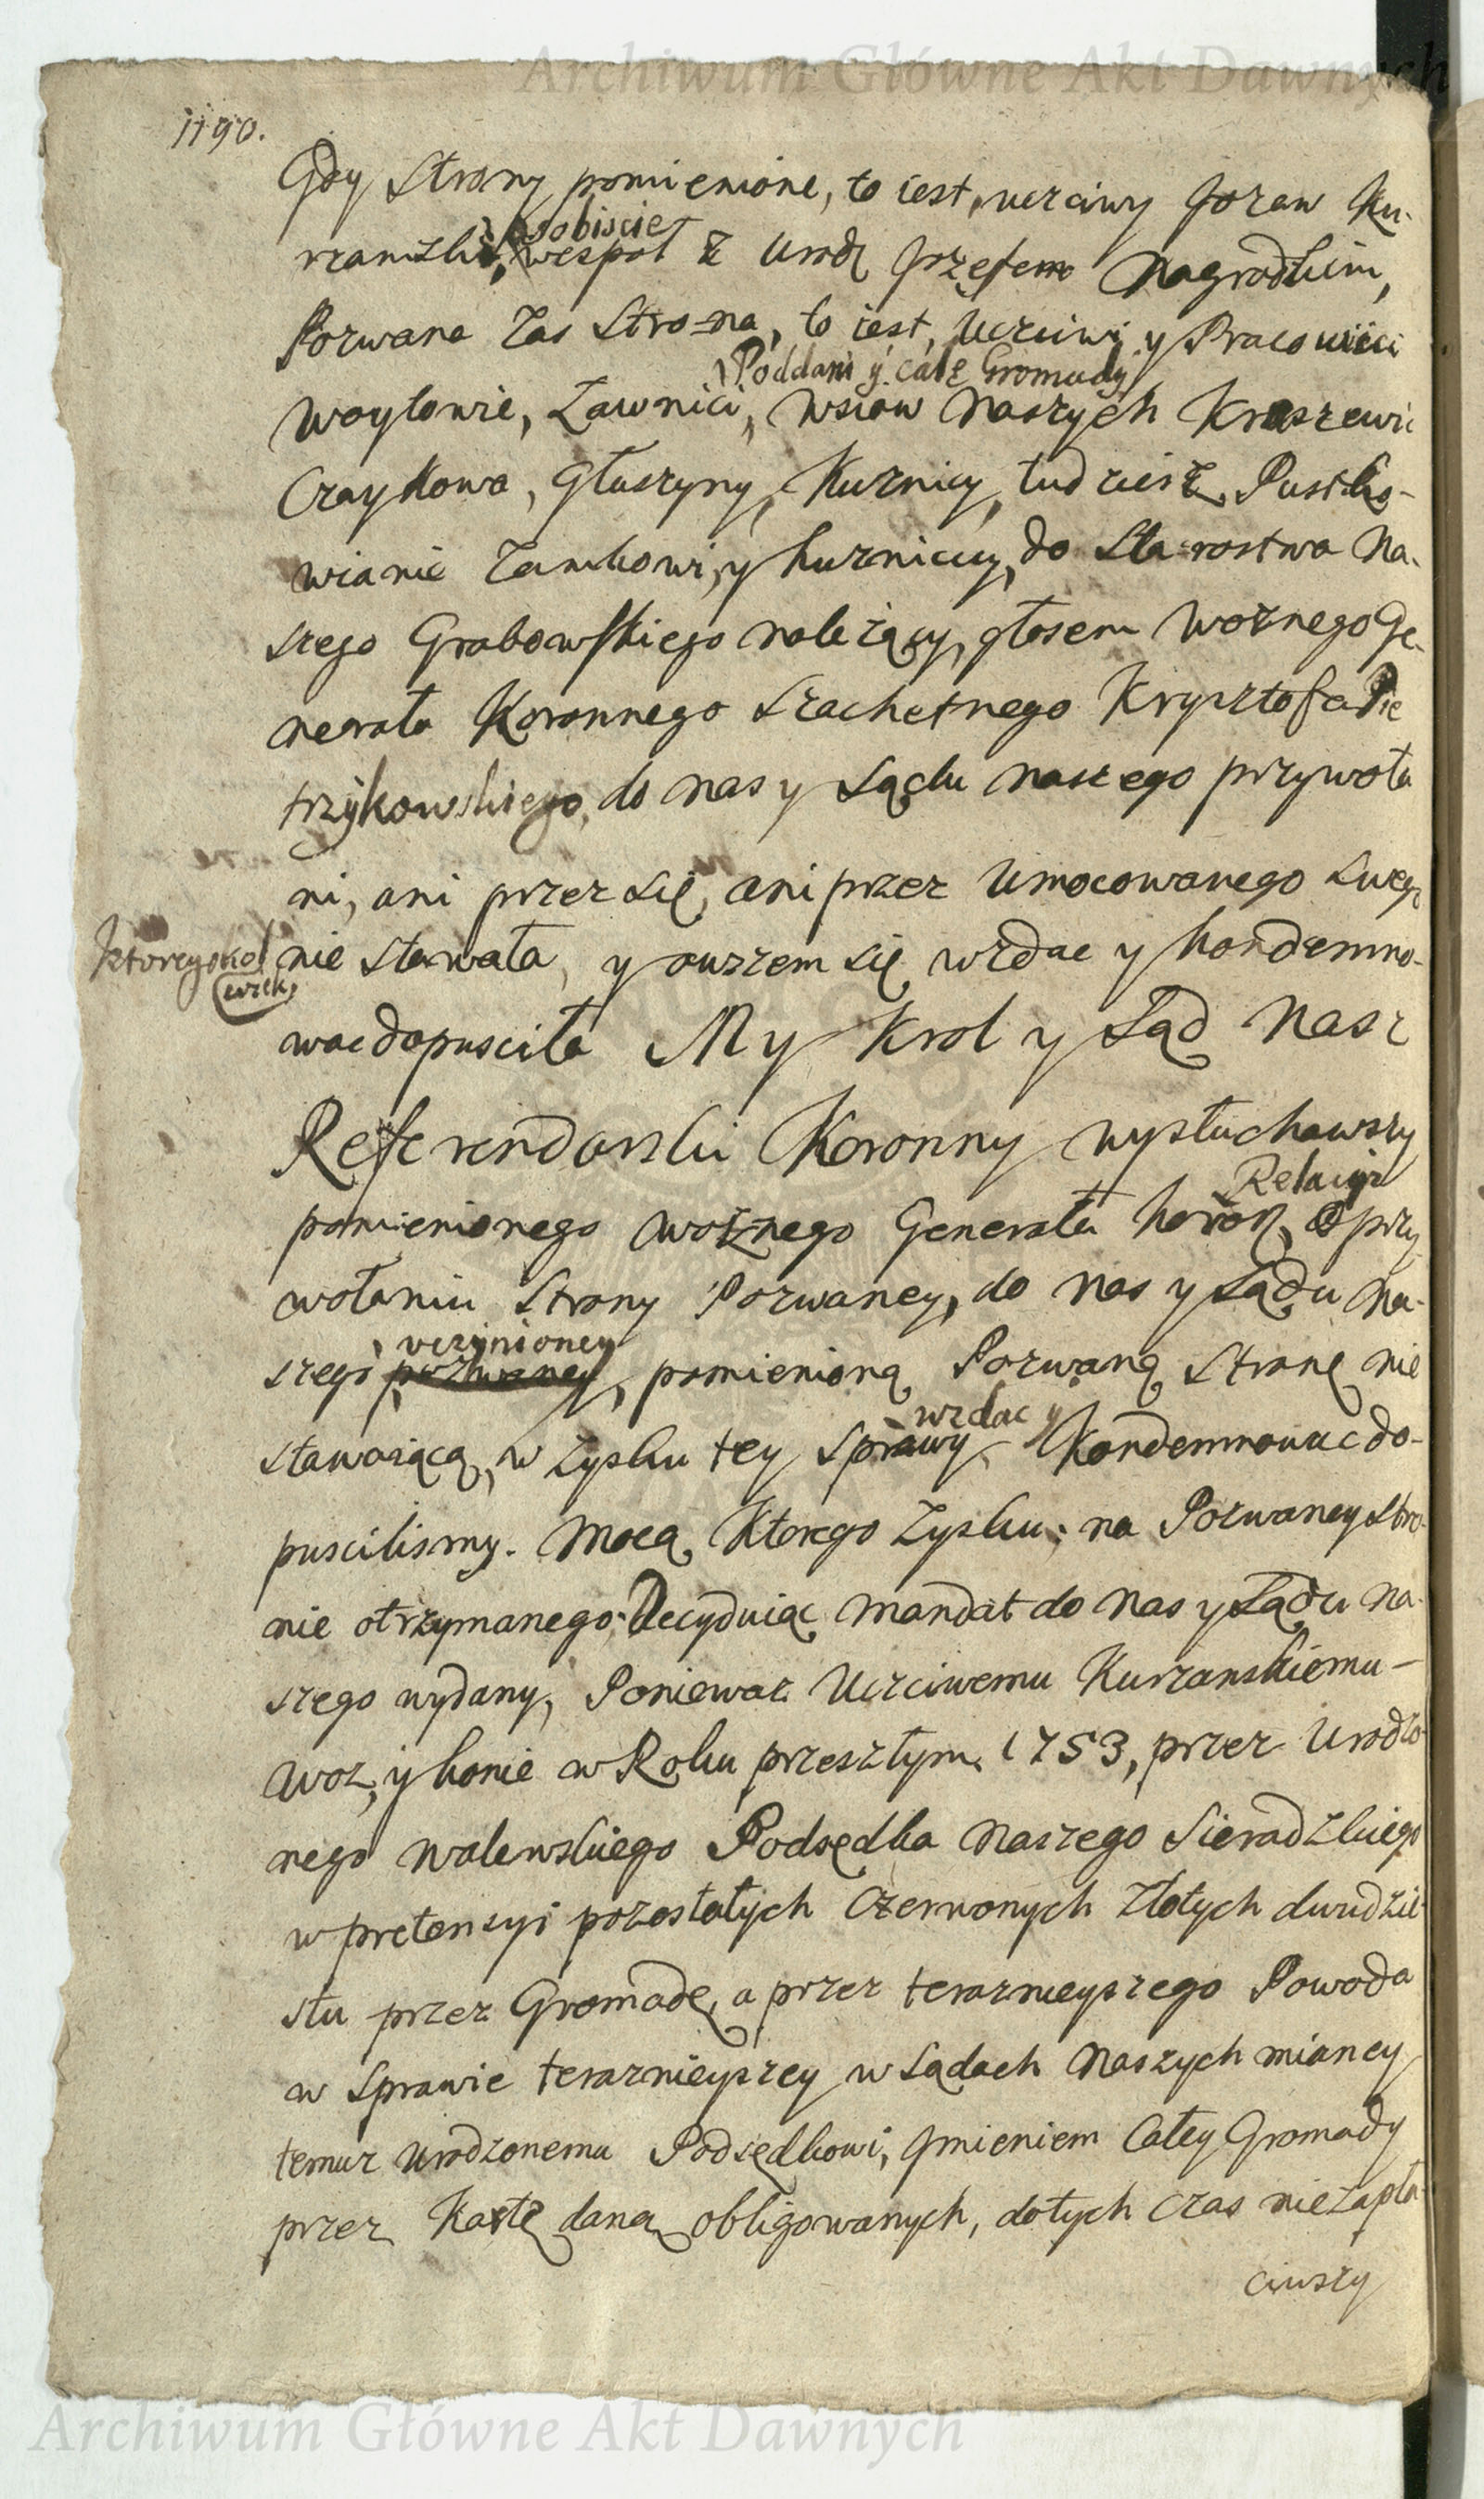 Archiwum Główne Akt Dawnych
1190.
Gdy Strony pomienione, to iest, ucrciwy Jozew Ku-
osobiscie
rzanszki, wespoł z Urodz Jozefem Nagrodzkim,
Pozwana zas Strona, to iest, Ucrciwi y Pracowici
Poddani y całe Gromady
Woytowie, Ławnici, wsiow Naszych Kraszewic
Czaykowa, Głuszyny, Kuznicy, tudziesz Pustko-
wianie Zamkowi, y kuzniccy, do Starostwa Na-
szego Grabowskiego należący, głosem Woznego Ge-
nerała Koronnego Szachetnego Krysztofa Pie
trzykowskiego, do nas y Sądu naszego przywoła
ni, ani przez Się, ani przez Umocowanego Swego
ktoregokol
wiek,
nie stawała, y owszem się wzdac y kondemno-
wac dopusciła My Krol y Sąd Nasz
Referendarski Koronny wysłuchawszy
Relacyi
pomienionego Woznego Generała koron, o przy
wołaniu Strony Pozwaney, do nas y Sądu Na-
uczynioney
szego pozwaney, pomienioną Pozwaną Stronę nie
wzdac y
stawaiącą, w Zysku tey Sprawy Kondemnowac do-
puscilismy. Mocą Ktorego Zysku, na Pozwaney Stro-
nie otrzymanego, Decyduiąc Mandat do Nas y Sądu Na-
szego wydany, Poniewaz Ucrciwemu Kurzanskiemu
Woz, y konie w Roku przeszłym 1753, przez Urodzo-
nego Walewskiego Podsędka Naszego Sieradzkiego
w pretensyi pozostałych Czerwonych Złotych dwudzie-
stu przez Gromadę, a przez terazneyszego Powoda
w Sprawie terazniejszey w Sądach Naszych mianey
temuz Urodzonemu Podsędkowi, Jmieniem Całey Gromady
przez Kartę daną obligowanych, dotych czas niezapła-
ciwszy
Archiwum Główne Akt Dawnych